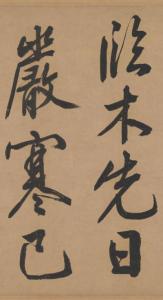 木先日
巖寒已